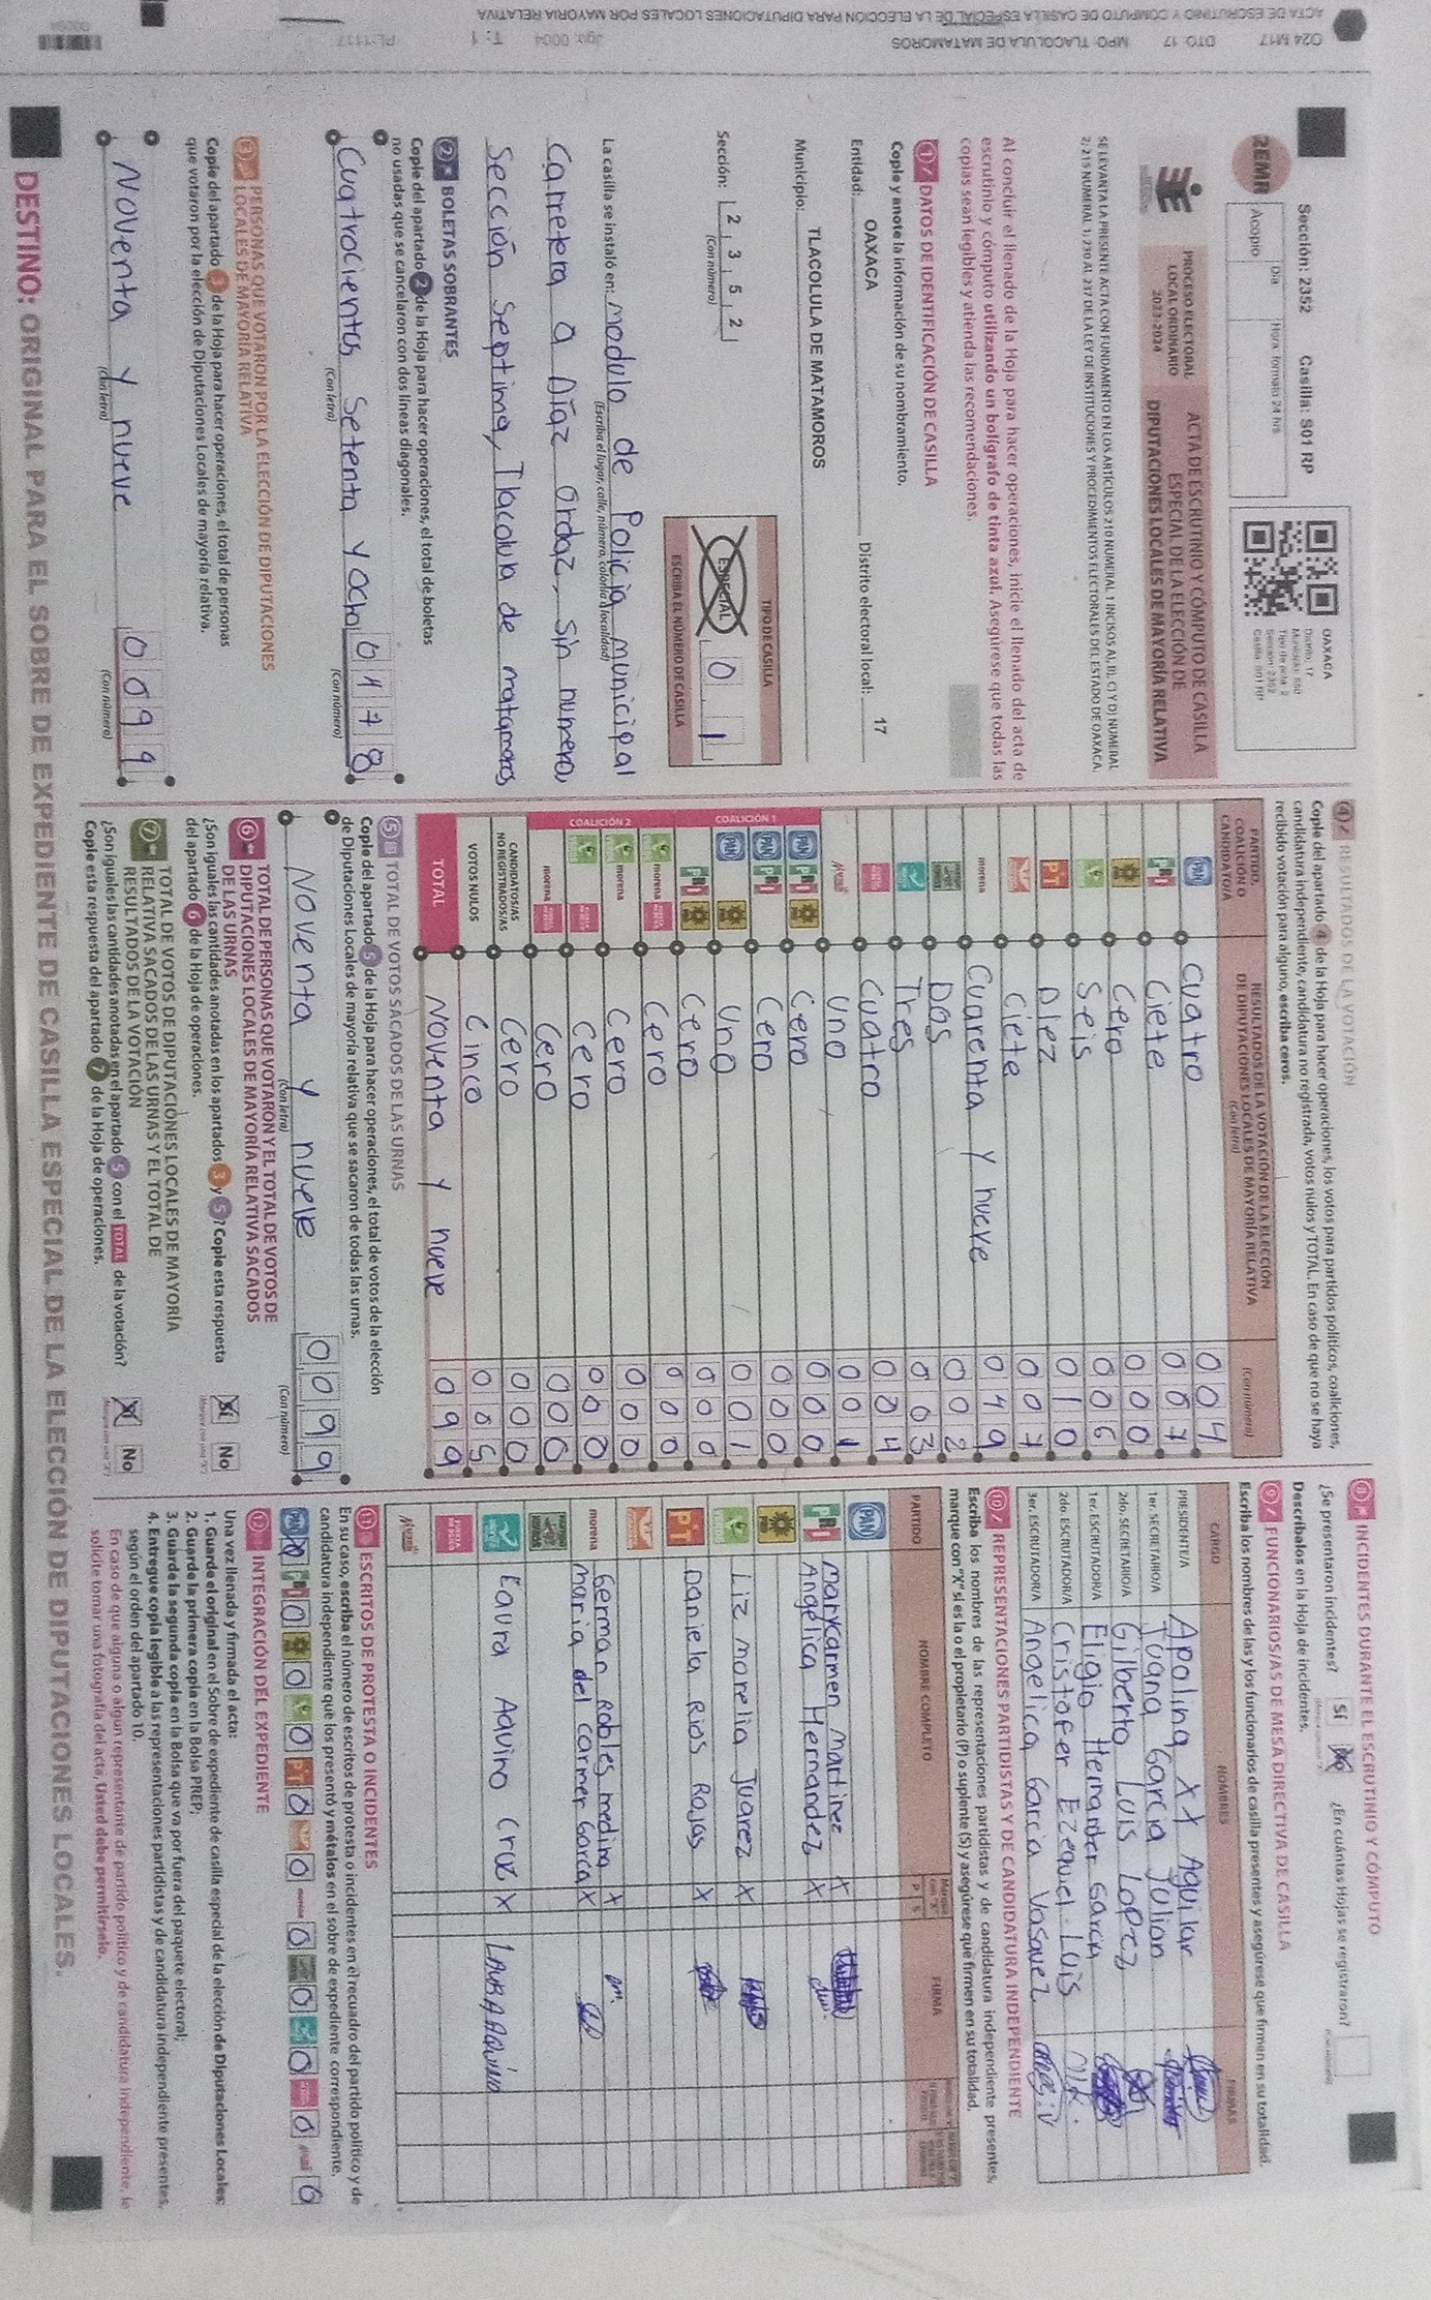 Sección: 2352 Casilla: S01 RP
2EMR
Acopio
Día
Hora formato 24 hrs
OAXACA
Distrito: 17
Tipo de acta: 2
Sección: 2352
PROCESO ELECTORAL
LOCAL ORDINARIO
2023-2024
ACTA DE ESCRUTINIO Y CÓMPUTO DE CASILLA
ESPECIAL DE LA ELECCIÓN DE
DIPUTACIONES LOCALES DE MAYORÍA RELATIVA
SE LEVANTA LA PRESENTE ACTA CON FUNDAMENTO EN LOS ARTÍCULOS 210 NUMERAL 1 INCISOS A), B), C) Y D) NUMERAL
2; 219 NUMERAL 1; 230 AL 237 DE LA LEY DE INSTITUCIONES Y PROCEDIMIENTOS ELECTORALES DEL ESTADO DE OAXACA.
Al concluir el llenado de la Hoja para hacer operaciones, inicie el llenado del acta de
escrutinio y cómputo utilizando un bolígrafo de tinta azul. Asegúrese que todas las
copias sean legibles y atienda las recomendaciones.
1 DATOS DE IDENTIFICACIÓN DE CASILLA
Copie y anote la información de su nombramiento.
Entidad: OAXACA Distrito electoral local: 17
Municipio: TLACOLULA DE MATAMOROS
Sección: 2 3 5 2
(Con número)
TIPO DE CASILLA
ESPECIAL 0 1
ESCRIBA EL NÚMERO DE CASILLA
La casilla se instaló en: modulo de Policia municipal
(Escriba el lugar, calle, número, colonia o localidad)
carretera a Díaz ordaz, sin numero,
Sección septima, Tlacolula de matamoros
2 BOLETAS SOBRANTES
Copie del apartado 2 de la Hoja para hacer operaciones, el total de boletas
no usadas que se cancelaron con dos líneas diagonales.
Cuatrocientos setenta y ocho 0478
(Con letra) (Con número)
3 PERSONAS QUE VOTARON POR LA ELECCIÓN DE DIPUTACIONES
LOCALES DE MAYORÍA RELATIVA
Copie del apartado 3 de la Hoja para hacer operaciones, el total de personas
que votaron por la elección de Diputaciones Locales de mayoría relativa.
Noventa y nueve 0099
(Con letra) (Con número)
4 RESULTADOS DE LA VOTACIÓN
Copie del apartado 4 de la Hoja para hacer operaciones, los votos para partidos políticos, coaliciones,
candidatura independiente, candidatura no registrada, votos nulos y TOTAL. En caso de que no se haya
recibido votación para alguno, escriba ceros.
PARTIDO,
COALICIÓN O
CANDIDATO/A
RESULTADOS DE LA VOTACIÓN DE LA ELECCIÓN
DE DIPUTACIONES LOCALES DE MAYORÍA RELATIVA
(Con letra)
(Con número)
PAN cuatro 004
PRI Ciete 007
PRD Cero 000
Seis 006
PT Diez 010
Ciete 007
morena Cuarenta y nueve 049
Dos 002
Tres 003
Cuatro 004
Uno 001
COALICIÓN 1
PAN PRI PRD Cero 000
PAN PRI Cero 000
PAN PRD Uno 001
PRI PRD Cero 000
COALICIÓN 2
morena Cero 000
morena Cero 000
Cero 000
morena Cero 000
CANDIDATOS/AS
NO REGISTRADOS/AS Cero 000
VOTOS NULOS Cinco 005
TOTAL Noventa y nueve 099
5 TOTAL DE VOTOS SACADOS DE LAS URNAS
Copie del apartado 5 de la Hoja para hacer operaciones, el total de votos de la elección
de Diputaciones Locales de mayoría relativa que se sacaron de todas las urnas.
Noventa y nueve 0099
(Con letra) (Con número)
6 TOTAL DE PERSONAS QUE VOTARON Y EL TOTAL DE VOTOS DE
DIPUTACIONES LOCALES DE MAYORÍA RELATIVA SACADOS
DE LAS URNAS
¿Son iguales las cantidades anotadas en los apartados 3 y 5? Copie esta respuesta
del apartado 6 de la Hoja de operaciones.
Sí No
7 TOTAL DE VOTOS DE DIPUTACIONES LOCALES DE MAYORÍA
RELATIVA SACADOS DE LAS URNAS Y EL TOTAL DE
RESULTADOS DE LA VOTACIÓN
¿Son iguales las cantidades anotadas en el apartado 5 con el TOTAL de la votación?
Copie esta respuesta del apartado 7 de la Hoja de operaciones.
Sí No
8 INCIDENTES DURANTE EL ESCRUTINIO Y CÓMPUTO
¿Se presentaron incidentes? Sí No ¿En cuántas Hojas se registraron?
Descríbalos en la Hoja de incidentes.
9 FUNCIONARIOS/AS DE MESA DIRECTIVA DE CASILLA
Escriba los nombres de las y los funcionarios de casilla presentes y asegúrese que firmen en su totalidad.
CARGO NOMBRES FIRMAS
PRESIDENTE/A Apolina Xt Aguilar
1er. SECRETARIO/A Juana García Julian
2do. SECRETARIO/A Gilberto Luis Lopez
1er. ESCRUTADOR/A Eligio Hernandez Garcia
2do. ESCRUTADOR/A Cristofer Ezequiel Luis
3er. ESCRUTADOR/A Angelica Garcia Vasquez
10 REPRESENTACIONES PARTIDISTAS Y DE CANDIDATURA INDEPENDIENTE
Escriba los nombres de las representaciones partidistas y de candidatura independiente presentes,
marque con "X" si es la o el propietario (P) o suplente (S) y asegúrese que firmen en su totalidad.
PARTIDO NOMBRE COMPLETO P S FIRMA
PAN marycarmen martinez X
PRI Angelica Hernandez X
PRD
Liz morelia Juarez X
PT Daniela Rios Rojas X
morena German Robles medina X
maria del carmen Garcia X
Laura Aquino Cruz X LAURA AQUINO
11 ESCRITOS DE PROTESTA O INCIDENTES
En su caso, escriba el número de escritos de protesta o incidentes en el recuadro del partido político y de
candidatura independiente que los presentó y métalos en el sobre de expediente correspondiente.
PAN 0 PRI 0 0 0 PT 0 0 0 0 0 0 0
12 INTEGRACIÓN DEL EXPEDIENTE
Una vez llenada y firmada el acta:
1. Guarde el original en el Sobre de expediente de casilla especial de la elección de Diputaciones Locales;
2. Guarde la primera copia en la Bolsa PREP;
3. Guarde la segunda copia en la Bolsa que va por fuera del paquete electoral;
4. Entregue copia legible a las representaciones partidistas y de candidatura independiente presentes,
según el orden del apartado 10.
En caso de que alguna o algún representante de partido político y de candidatura independiente, le
solicite tomar una fotografía del acta, Usted debe permitírselo.
DESTINO: ORIGINAL PARA EL SOBRE DE EXPEDIENTE DE CASILLA ESPECIAL DE LA ELECCIÓN DE DIPUTACIONES LOCALES.
024 M17 DTO: 17 MPO: TLACOLULA DE MATAMOROS Jgo: 0004 T: 1
ACTA DE ESCRUTINIO Y COMPUTO DE CASILLA ESPECIAL DE LA ELECCIÓN PARA DIPUTACIONES LOCALES POR MAYORIA RELATIVA